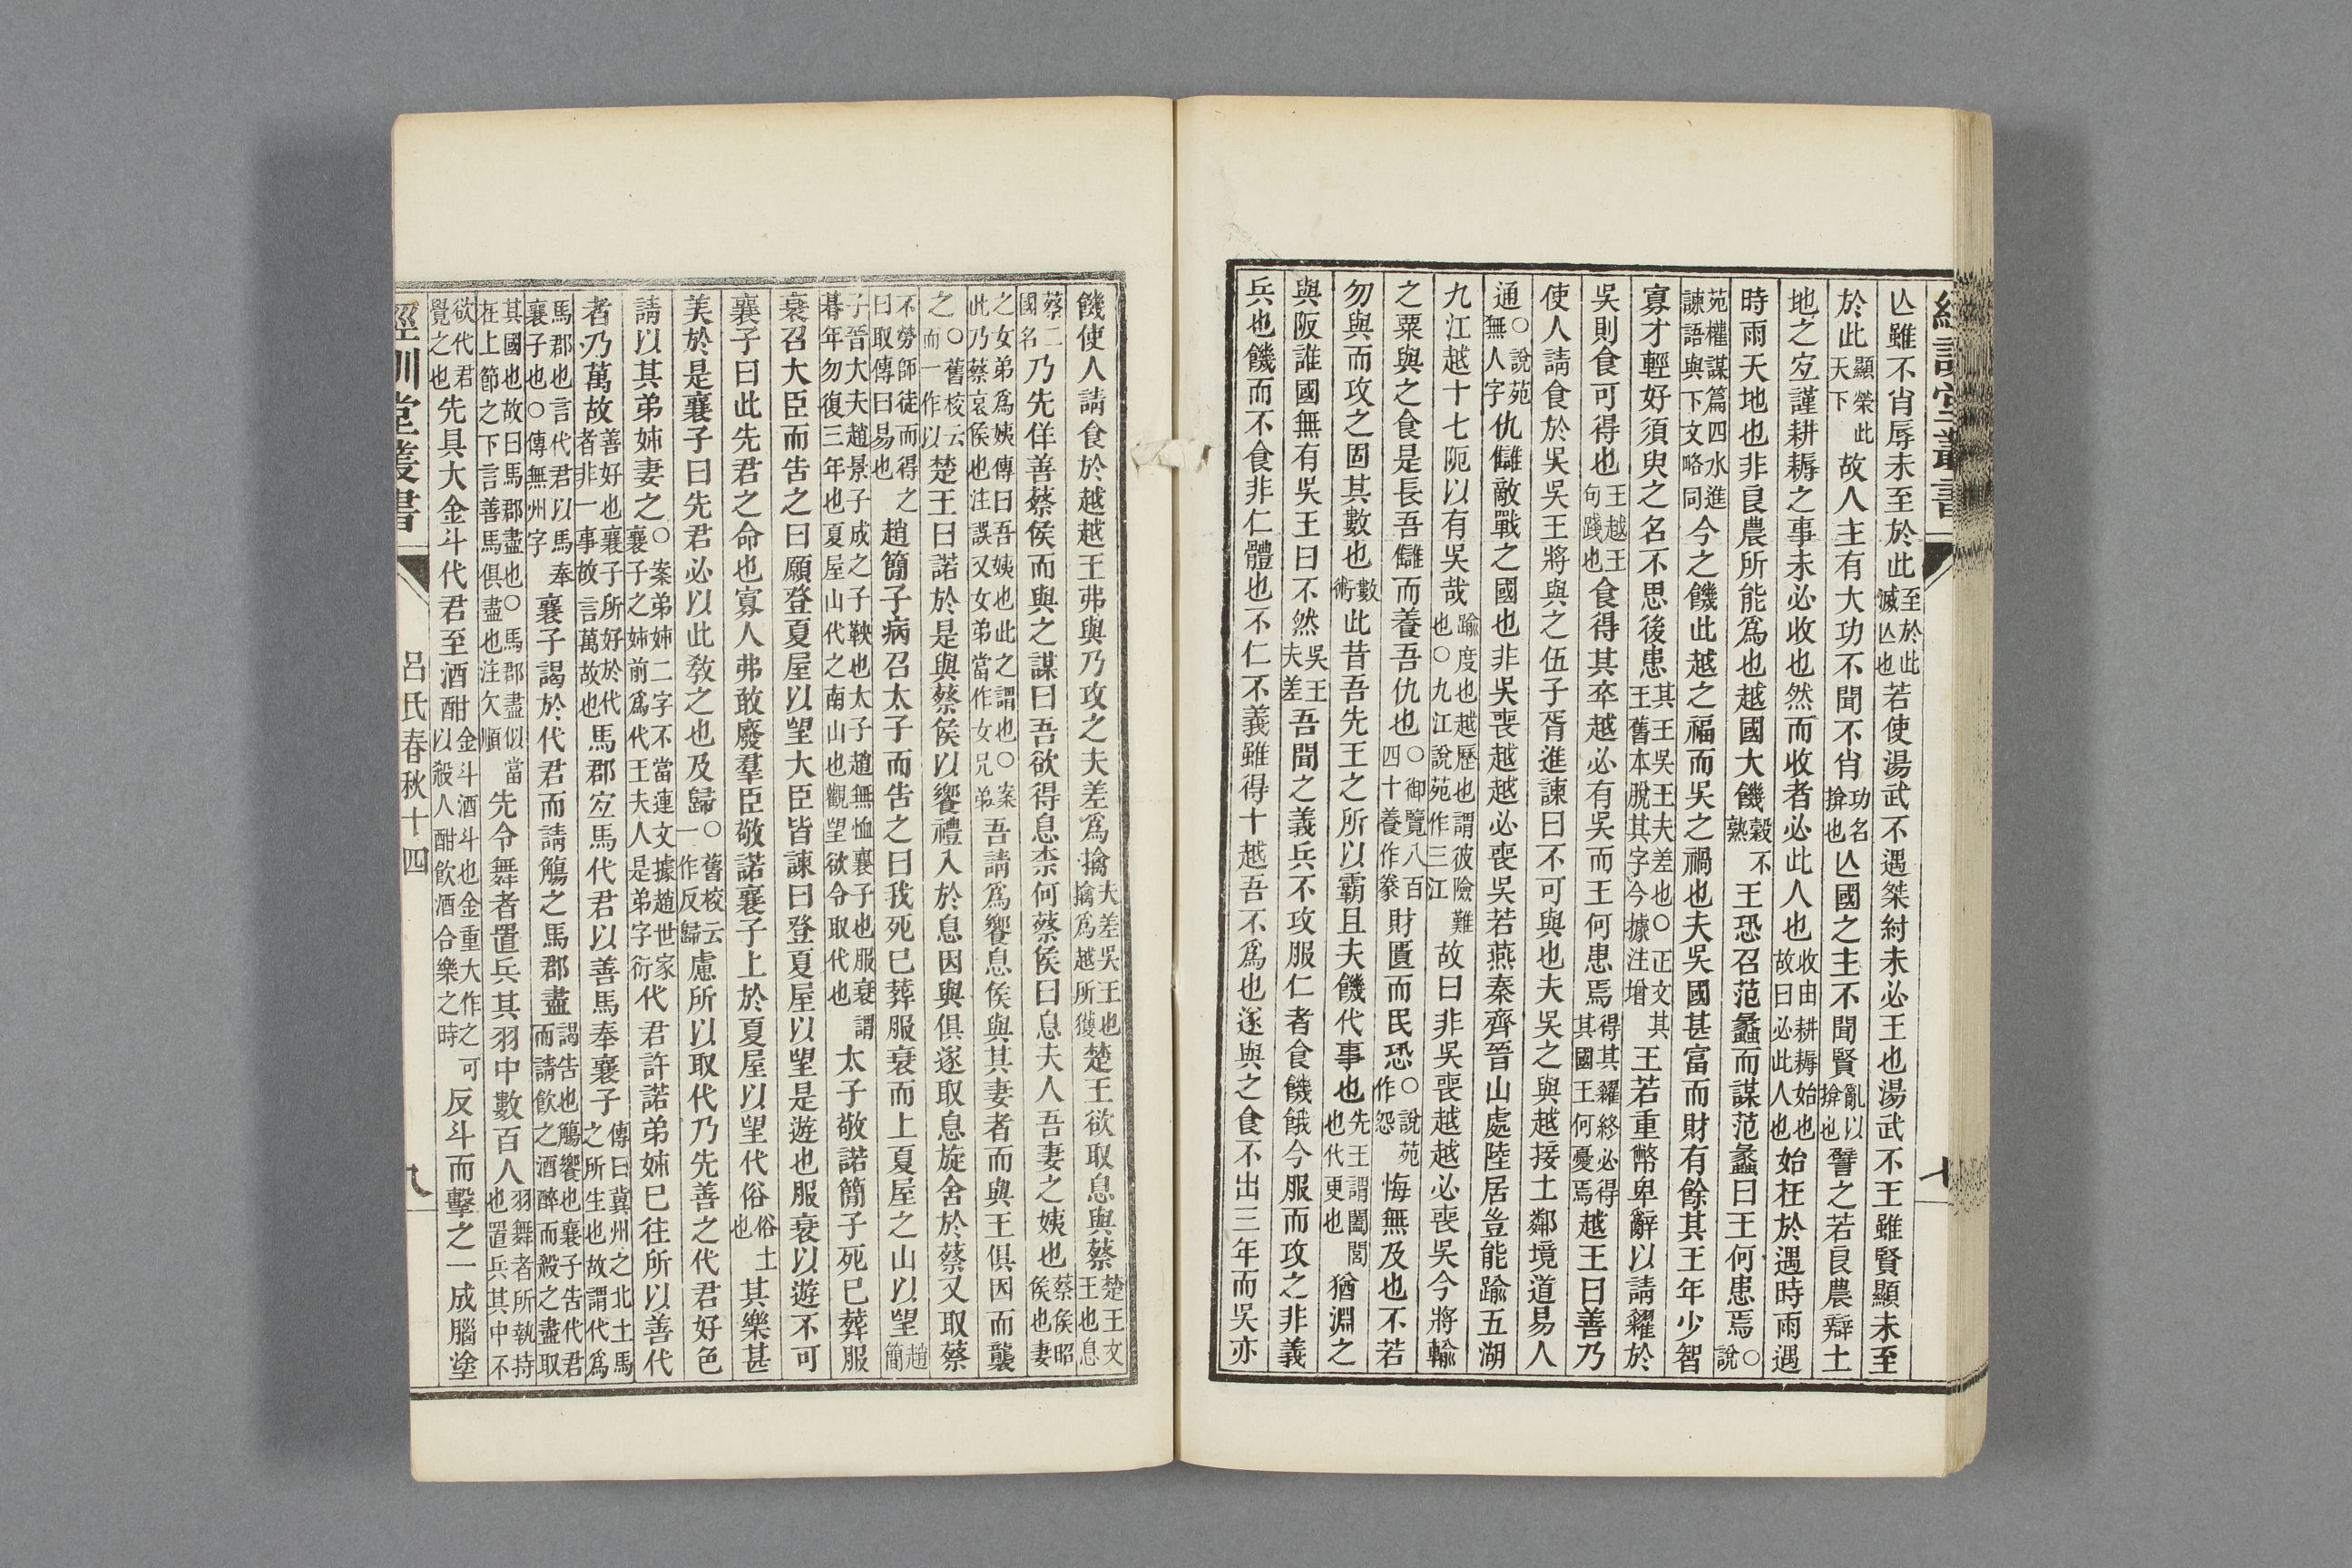 亾雖不肖辱未至於此至於此滅亾也若使湯武不遇桀紂未必王也湯武不王雖賢顯未至
於此顯榮此天下故人主有大功不聞不肖功名揜也亾國之主不聞賢亂以揜也譬之若良農辯土
地之宐謹耕耨之事未必收也然而收者必此人也收由耕耨始也故曰必此人也始在於遇時雨遇
時雨天地也非良農所能爲也越國大饑穀不熟王恐召范蠡而謀范蠡曰王何患焉○說
苑權謀篇四水進諫語與下文略同今之饑此越之福而吳之禍也夫吳國甚富而財有餘其王年少智
寡才輕好須臾之名不思後患其王吳王夫差也○正文其王舊本脫其字今據注增王若重幣卑辭以請糴於
吳則食可得也王越王句踐也食得其卒越必有吳而王何患焉得其糴終必得其國王何憂焉越王曰善乃
使人請食於吳吳王將與之伍子胥進諫曰不可與也夫吳之與越接土鄰境道易人
通○說苑無人字仇讎敵戰之國也非吳喪越越必喪吳若燕秦齊晉山處陸居豈能踰五湖
九江越十七阨以有吳哉踰度也越歷也謂彼險難也○九江說苑作三江故曰非吳喪越越必喪吳今將輸
之粟與之食是長吾讎而養吾仇也○御覽八百四十養作豢財匱而民恐○說苑作怨悔無及也不若
勿與而攻之固其數也數術此昔吾先王之所以霸且夫饑代事也先王謂闔閭也代更也猶淵之
與阪誰國無有吳王曰不然吳王夫差吾聞之義兵不攻服仁者食饑餓今服而攻之非義
兵也饑而不食非仁體也不仁不義雖得十越吾不爲也遂與之食不出三年而吳亦
饑使人請食於越越王弗與乃攻之夫差爲擒夫差吳王也擒爲越所獲楚王欲取息與蔡楚王文王也息
蔡二國名乃先佯善蔡侯而與之謀曰吾欲得息柰何蔡侯曰息夫人吾妻之姨也蔡侯昭侯也妻
之女弟爲姨傳曰吾姨也此之謂也○案此乃蔡哀侯也注誤又女弟當作女兄弟吾請爲饗息侯與其妻者而與王俱因而襲
之○舊校云而一作以楚王曰諾於是與蔡侯以饗禮入於息因與俱遂取息旋舍於蔡又取蔡
不勞師徒而得之曰取傳曰易也趙簡子病召太子而告之曰我死巳葬服衰而上夏屋之山以望趙簡
子晉大夫趙景子成之子鞅也太子趙無恤襄子也服衰謂朞年勿復三年也夏屋山代之南山也觀望欲令取代也太子敬諾簡子死巳葬服
衰召大臣而告之曰願登夏屋以望大臣皆諫曰登夏屋以望是遊也服衰以遊不可
襄子曰此先君之命也寡人弗敢廢羣臣敬諾襄子上於夏屋以望代俗俗土也其樂甚
美於是襄子曰先君必以此敎之也及歸○舊校云一作反歸慮所以取代乃先善之代君好色
請以其弟姉妻之○案弟姉二字不當連文據趙世家襄子之姉前爲代王夫人是弟字衍代君許諾弟姉巳往所以善代
者乃萬故善好也襄子所好於代者非一事故言萬故也馬郡宐馬代君以善馬奉襄子傳曰冀州之北土馬之所生也故謂代爲
馬郡也言代君以馬奉襄子也○傳無州字襄子謁於代君而請觴之馬郡盡謁告也觴饗也襄子告代君而請飲之酒醉而殺之盡取
其國也故曰馬郡盡也○馬郡盡似當在上節之下言善馬俱盡也注欠順先令舞者置兵其羽中數百人羽舞者所執持也置兵其中不
欲代君覺之也先具大金斗代君至酒酣金斗酒斗也金重大作之可以殺人酣飲酒合樂之時反斗而擊之一成腦塗
經訓堂叢書
呂氏春秋十四
八